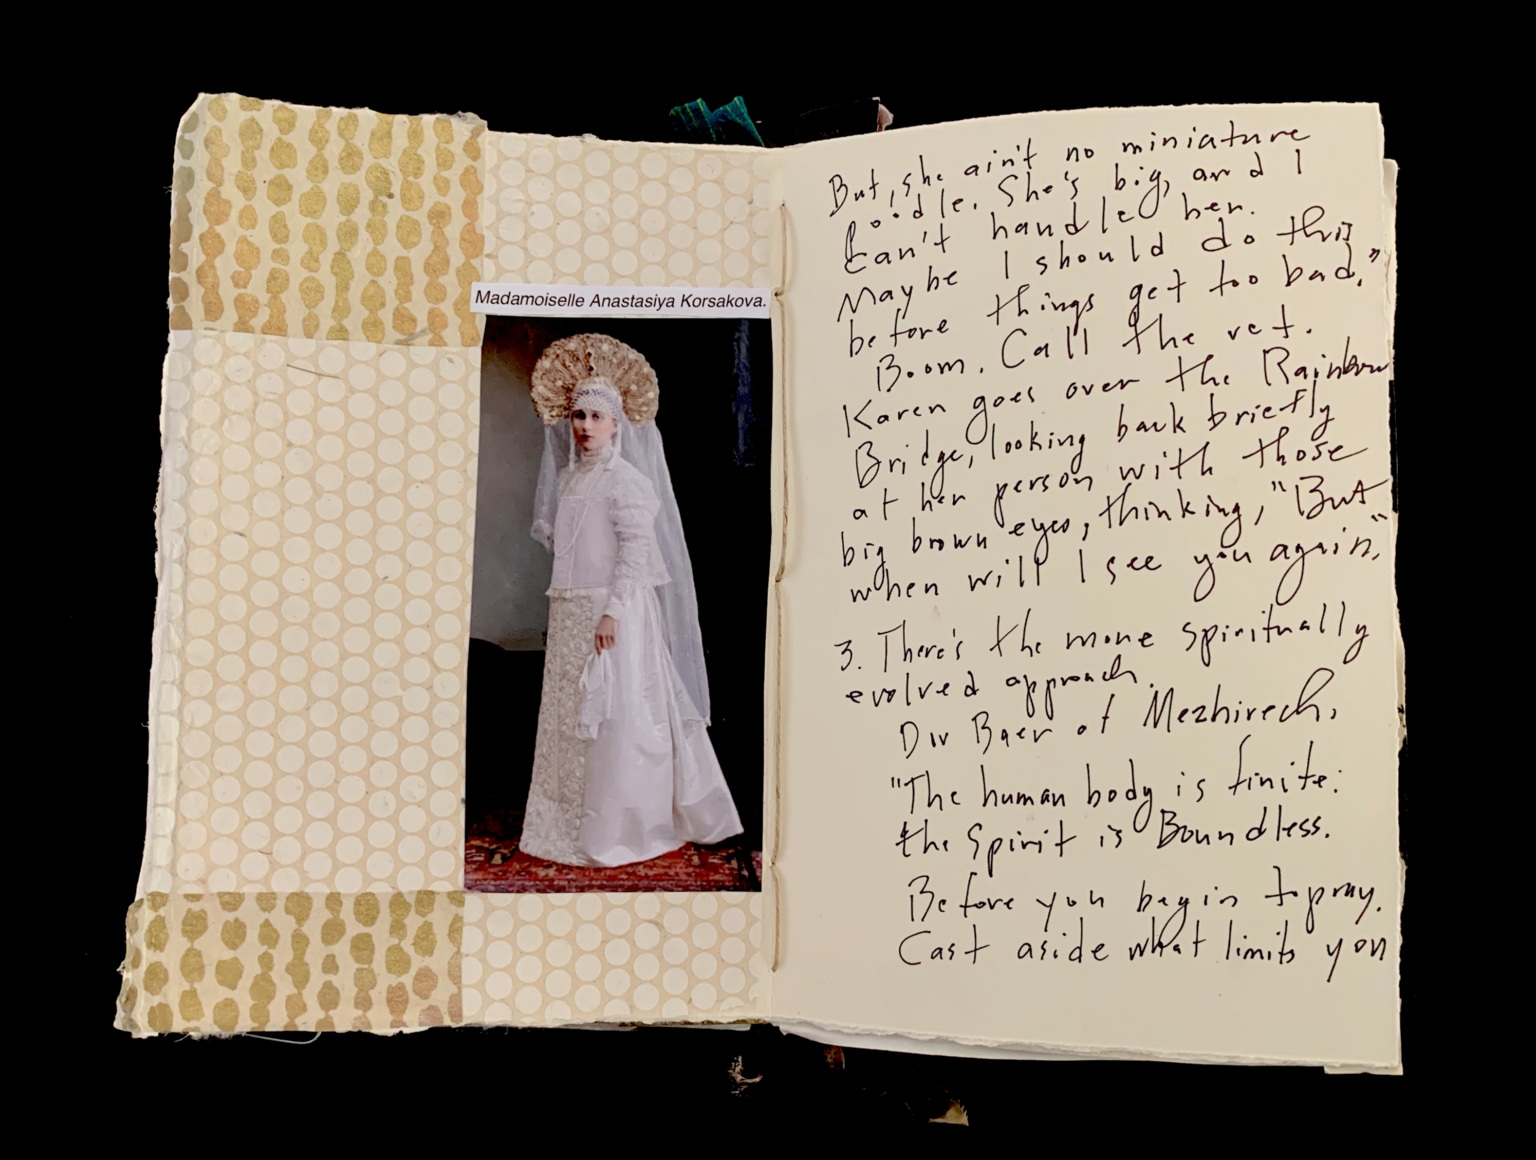 Madamoiselle Anastasiya Korsakova.
But, she ain't no miniature
Poodle. She's big, and I
can't handle her.
Maybe I should do this
before things get too bad."
Boom. Call the vet.
Karen goes over the Rainbow
Bridge, looking back briefly
at her person with those
big brown eyes, thinking, "But
when will I see you again."
3. There's the more spiritually
evolved approach.
Dov Baer of Mezhirech.
"The human body is finite:
the Spirit is Boundless.
Before you begin to pray.
Cast aside what limits you